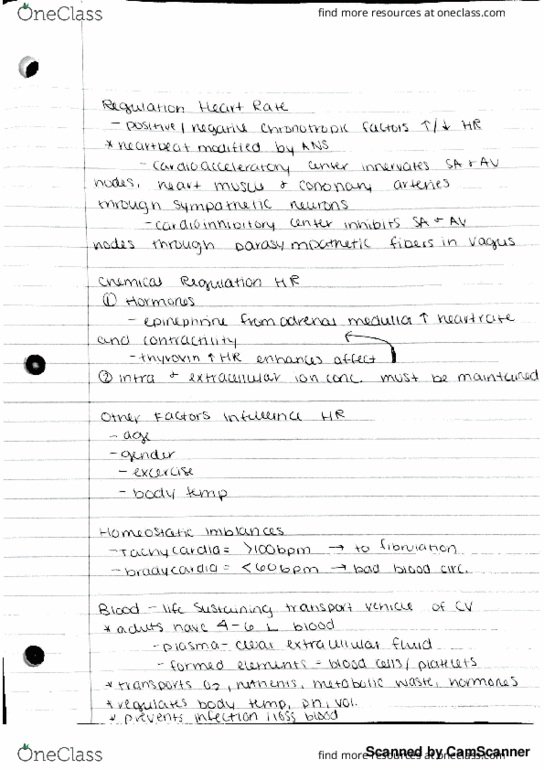 OneClass
find more resources at oneclass.com
Regulation Heart Rate
- positive/negative chronotropic factors ↑/↓ HR
* heartbeat modified by ANS
- cardioacceleratory center innervates SA + AV
nodes, heart muscle + coronary arteries
through sympathetic neurons
- cardioinhibitory center inhibits SA + AV
nodes through parasympathetic fibers in vagus
Chemical Regulation HR
① Hormones
- epinephrine from adrenal medulla ↑ heartrate
and contractility
- thyroxin ↑ HR enhances affect
② intra + extracellular ion conc. must be maintained
Other Factors Influence HR
- age
- gender
- excercise
- body temp
Homeostatic Imblances
- Tachycardia = >100bpm → to fibrulation
- bradycardia = <60bpm → bad blood circ.
Blood - life sustaining transport vehicle of CV
* adults have 4-6 L blood
- plasma - clear extracellular fluid
- formed elements = blood cells/platelets
* transports O2, nutrients, metabolic waste, hormones
* regulates body temp, pH, vol.
* prevents infection / loss blood
OneClass
find more resources at oneclass.com
Scanned by CamScanner